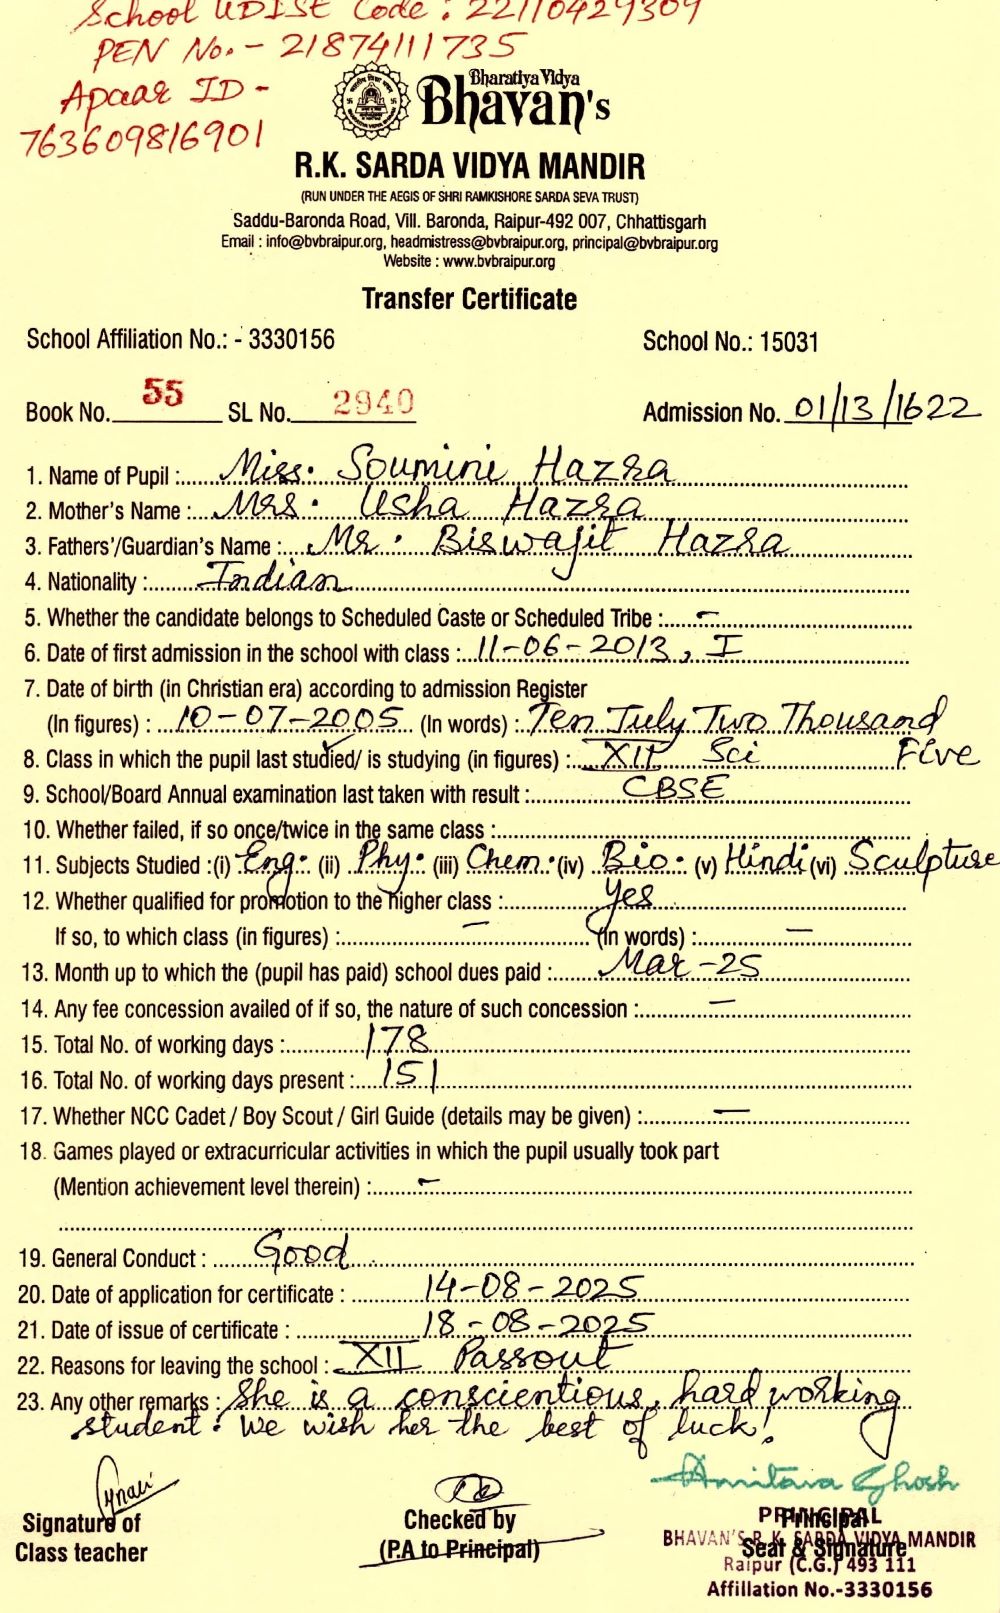 School UDISE Code : 22110429309
PEN No. - 21874111735
Apaar ID -
763609816901
Bharatiya Vidya
Bhavan's
R.K. SARDA VIDYA MANDIR
(RUN UNDER THE AEGIS OF SHRI RAMKISHORE SARDA SEVA TRUST)
Saddu-Baronda Road, Vill. Baronda, Raipur-492 007, Chhattisgarh
Email : info@bvbraipur.org, headmistress@bvbraipur.org, principal@bvbraipur.org
Website : www.bvbraipur.org
Transfer Certificate
School Affiliation No.: - 3330156 School No.: 15031
Book No. 55 SL No. 2940 Admission No. 01/13/1622
1. Name of Pupil : Miss. Soumini Hazra
2. Mother's Name : Mrs. Usha Hazra
3. Fathers'/Guardian's Name : Mr. Biswajit Hazra
4. Nationality : Indian
5. Whether the candidate belongs to Scheduled Caste or Scheduled Tribe : -
6. Date of first admission in the school with class : 11-06-2013, I
7. Date of birth (in Christian era) according to admission Register
(In figures) : 10-07-2005 (In words) : Ten July Two Thousand
8. Class in which the pupil last studied/ is studying (in figures) : XII Sci Five
9. School/Board Annual examination last taken with result : CBSE
10. Whether failed, if so once/twice in the same class :
11. Subjects Studied :(i) Eng. (ii) Phy. (iii) Chem. (iv) Bio. (v) Hindi (vi) Sculpture
12. Whether qualified for promotion to the higher class : Yes
If so, to which class (in figures) : - (In words) : -
13. Month up to which the (pupil has paid) school dues paid : Mar-25
14. Any fee concession availed of if so, the nature of such concession : -
15. Total No. of working days : 178
16. Total No. of working days present : 151
17. Whether NCC Cadet / Boy Scout / Girl Guide (details may be given) : -
18. Games played or extracurricular activities in which the pupil usually took part
(Mention achievement level therein) : -
19. General Conduct : Good
20. Date of application for certificate : 14-08-2025
21. Date of issue of certificate : 18-08-2025
22. Reasons for leaving the school : XII Passout
23. Any other remarks : She is a conscientious, hard working
student. We wish her the best of luck!
Amitava Ghosh
Signature of Checked by Principal
Class teacher (P.A to Principal) Seal & Signature
PRINCIPAL
BHAVAN'S R.K. SARDA VIDYA MANDIR
Raipur (C.G.) 493 111
Affillation No.-3330156